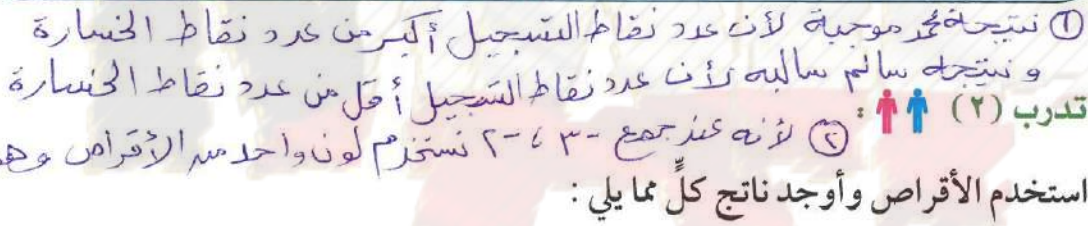 ① نتيجة محمد موجبة لأن عدد نقاط التسجيل أكبر من عدد نقاط الخسارة
و نتيجة سالم سالبه لأن عدد نقاط التسجيل أقل من عدد نقاط الخسارة
تدرب (٢) :
② لأنه عند جمع -٣ ، -٢ نستخدم لون واحد من الأقراص وهـ
استخدم الأقراص وأوجد ناتج كلٍّ مما يلي :